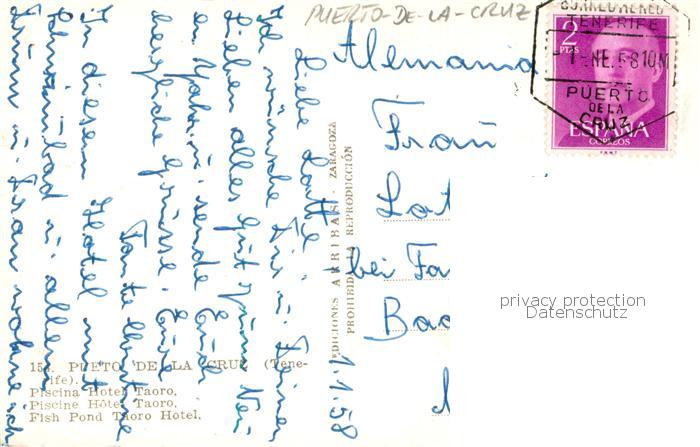 PUERTO-DE-LA-CRUZ
CORREO AEREO
TENERIFE
1 ENE. 58 10M
PUERTO
DE LA
CRUZ
2
PTAS
ESPAÑA
CORREOS
Alemania
Frau
Lot
bei Fa
Bad
1.1.58
Liebe Lotte!
Ich wünsche Dir u. Deinen
Lieben alles gute zum Neu
en Jahr u. sende Euch
herzliche Grüsse. Eure
Tante
In diesem Hotel mit
Schwimmbad u. allem
wohne ich
EDICIONES ARRIBAS - ZARAGOZA
PROHIBIDA LA REPRODUCCIÓN
15 PUETO DE LA CRUZ (Tene-
rife).
Piscina Hotel Taoro.
Piscine Hôtel Taoro.
Fish Pond Taoro Hôtel.
privacy protection
Datenschutz